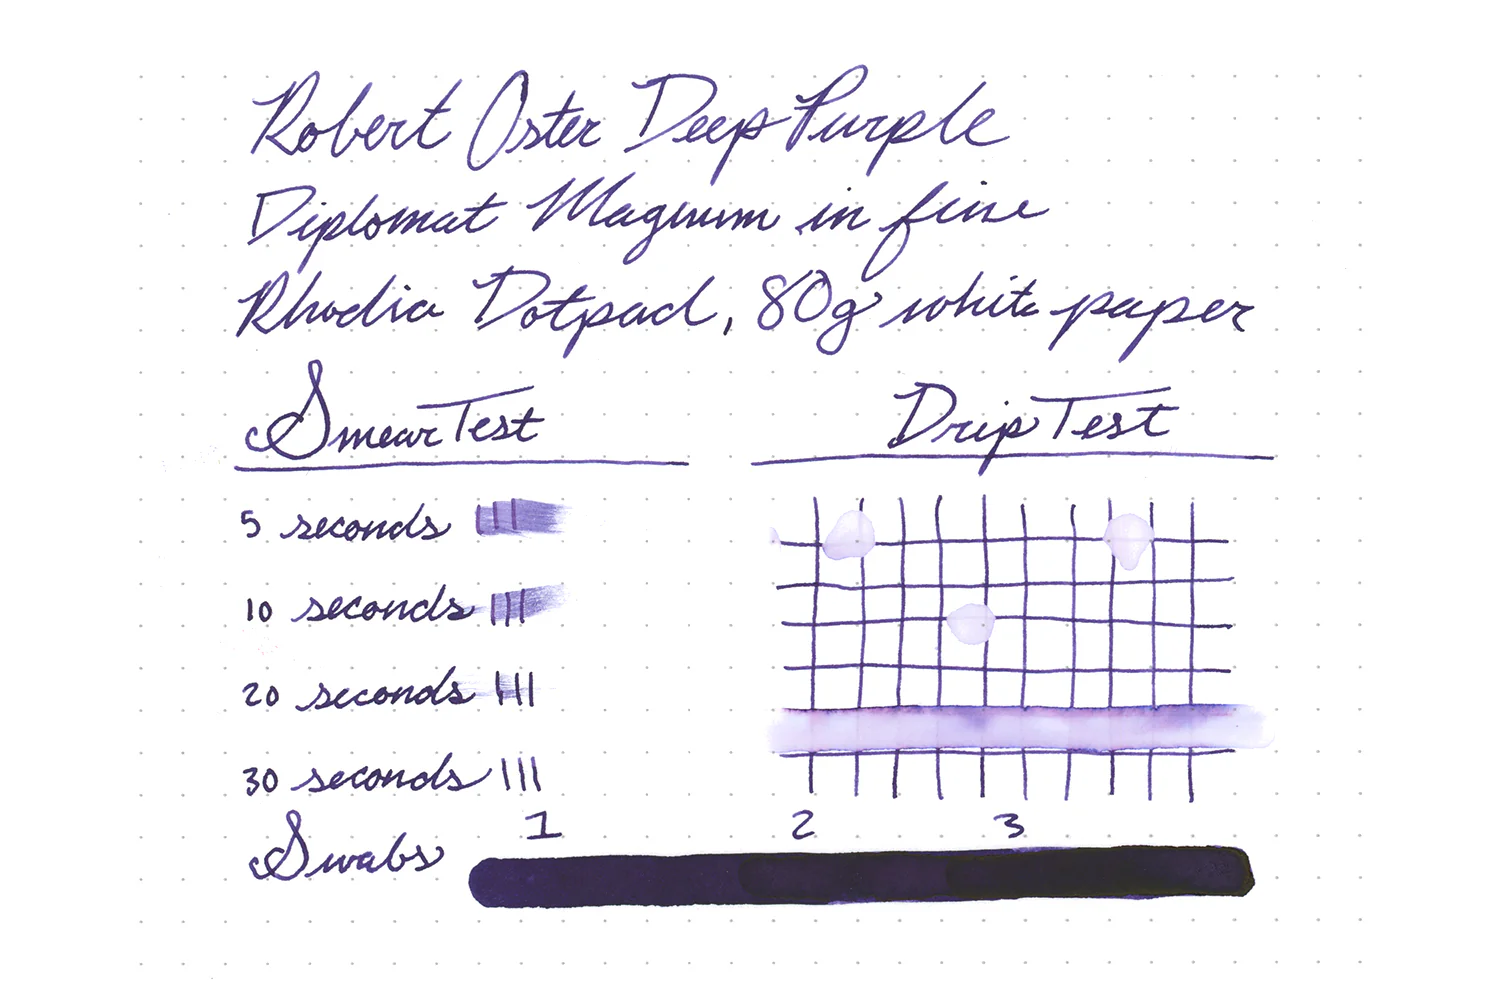 Robert Oster Deep Purple
Diplomat Magnum in fine
Rhodia Dotpad, 80g white paper
Smear Test
Drip Test
5 seconds
10 seconds
20 seconds
30 seconds
Swabs
1 2 3